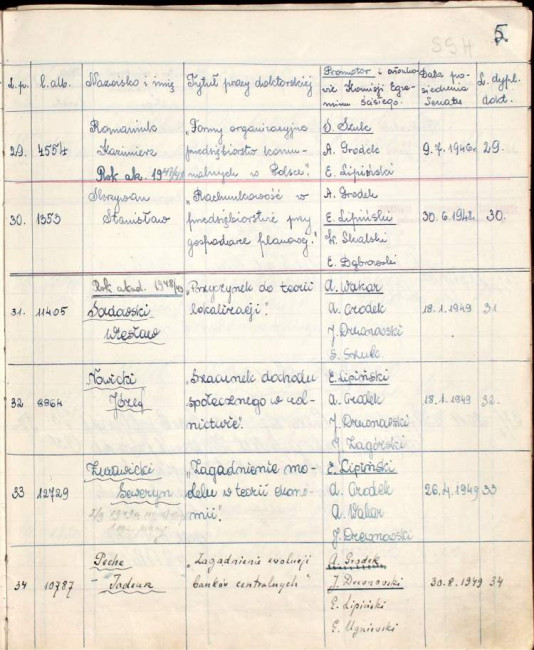 SGH
5.
L.p. L. alb. Nazwisko i imię Tytuł pracy doktorskiej Promotor i członko- Data po- L. dypl.
wie Komisji Egza- siedzenia dokt.
minu ścisłego. Senatu
Romaniuk „Formy organizacyjne S. Szulc
29. 4554 Kazimierz przedsiębiorstw komu- A. Grodek 9.7.1946r. 29.
Rok ak. 1947/48 nalnych w Polsce”. E. Lipiński
Skrzywan „Rachunkowość w A. Grodek
30. 1353 Stanisław przedsiębiorstwie przy E. Lipiński 30.6.1948. 30.
gospodarce planowej.” W. Skalski
E. Dąbrowski
Rok akad. 1948/49 „Przyczynek do teorii A. Wakar
31. 11405 Sadowski lokalizacji”. A. Grodek 18.1.1949 31
Wiesław J. Drewnowski
S. Szulc
Nowicki „Szacunek dochodu E. Lipiński
32 8964 Józef społecznego w rol- A. Grodek 18.1.1949 32.
nictwie”. J. Drewnowski
J. Zagórski
Żurawicki „Zagadnienie mo- E. Lipiński
33 12729 Seweryn delu w teorii ekono- A. Grodek 26.4.1949 33
mii”. A. Wakar
J. Drewnowski
Peche „Zagadnienia ewolucji A. Grodek
34 10787 Tadeusz banków centralnych” J. Drewnowski 30.8.1949 34
E. Lipiński
E. Ugniewski